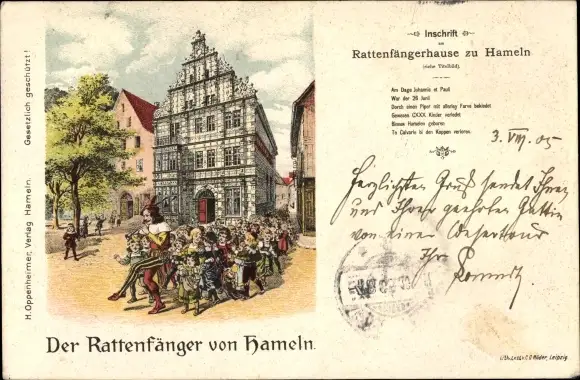 H. Oppenheimer, Verlag Hameln. Gesetzlich geschützt!
Inschrift
am
Rattenfängerhause zu Hameln
(siehe Titelbild).
Am Dage Johannis et Pauli
War der 26 Junii
Durch einen Piper mit allerley Farve bekledet
Gewesen CXXX Kinder verledet
Binnen Hamelen geboren
To Calvarie bi den Koppen verloren.
3. VIII. 05
Herzlichsten Gruß sendet Ihnen
und Ihrer geehrten Gattin
von einer Wesertour
Ihr
Der Rattenfänger von Hameln.
Lith. u. C.G. Röder, Leipzig.